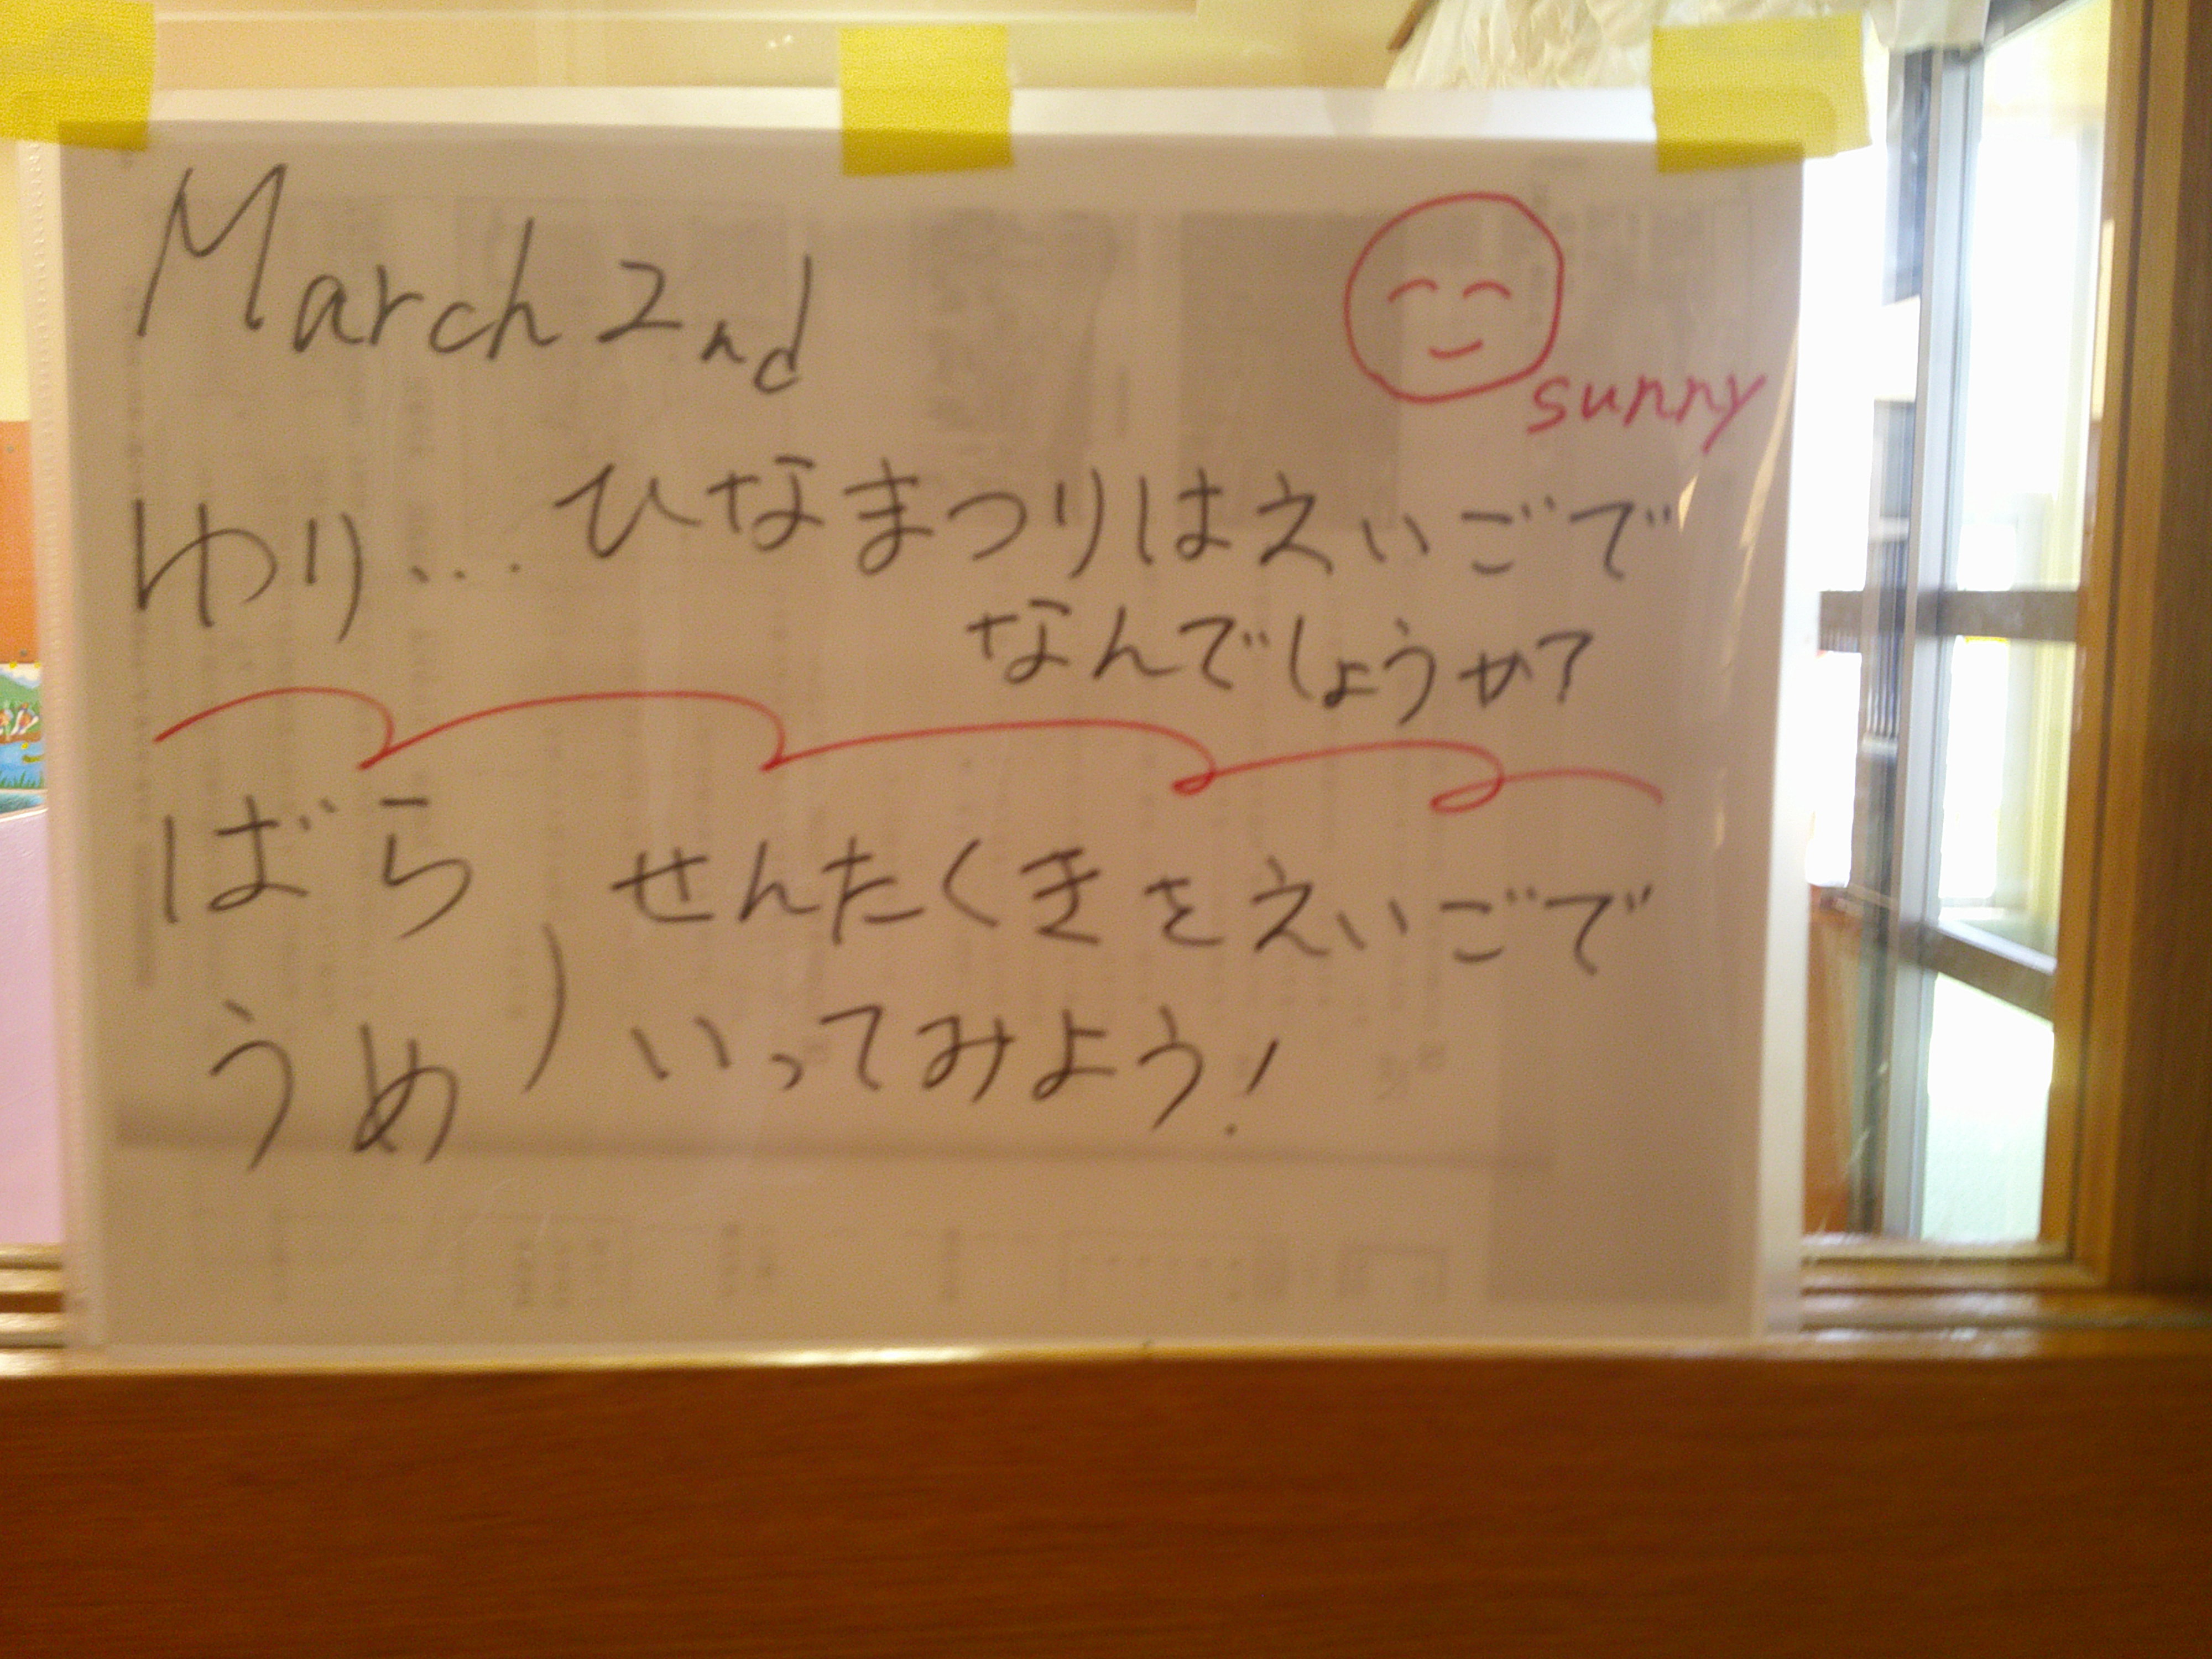 March 2nd
sunny
ゆり… ひなまつりはえいごで
なんでしょうか?
ばら せんたくきをえいごで
うめ) いってみよう!